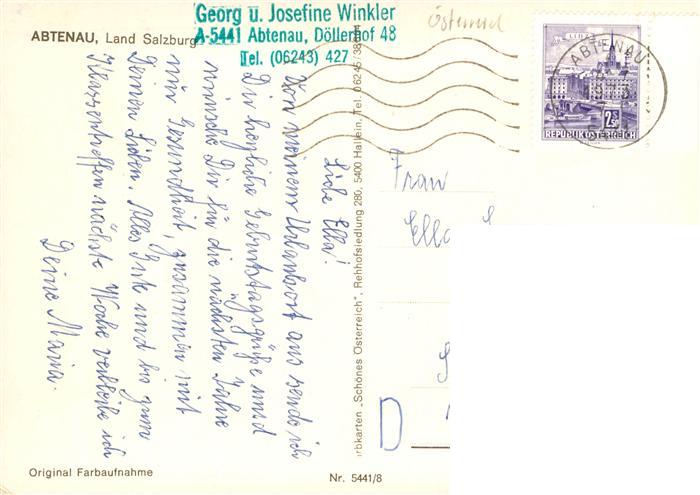 ABTENAU, Land Salzburg
Georg u. Josefine Winkler
A-5441 Abtenau, Döllerhof 48
Tel. (06243) 427
Österreich
LINZ A.D.
2s
REPUBLIK ÖSTERREICH
ABTENAU
Liebe Ella!
Von meinem Urlaubsort aus sende ich
Dir herzliche Geburtstagsgrüße und
wünsche Dir für die nächsten Jahre
nur Gesundheit, zusammen mit
Deinen Lieben. Alles Gute und bis zum
Klassentreffen nächste Woche verbleibe ich
Deine Maria.
Frau
Ella
D
arbkarten „Schönes Österreich", Rehhofsiedlung 280, 5400 Hallein, Tel. 06245/38
Original Farbaufnahme
Nr. 5441/8